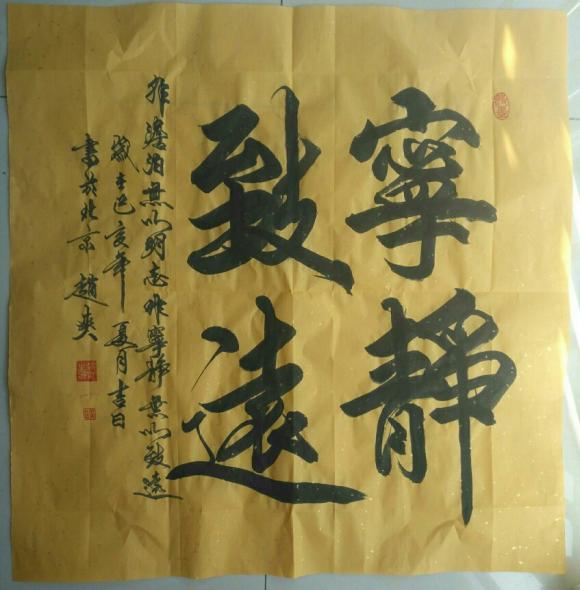 寧靜
致遠
非澹泊無以明志非寧静無以致遠
歲在己亥年夏月吉日
書於北京趙爽